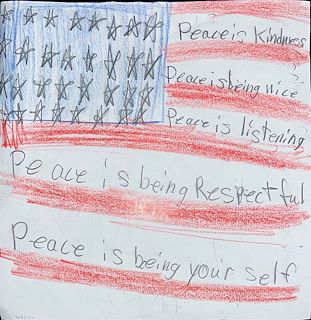 Peace is Kindness
Peace is being nice
Peace is listening
Peace is being Respectful
Peace is being your self